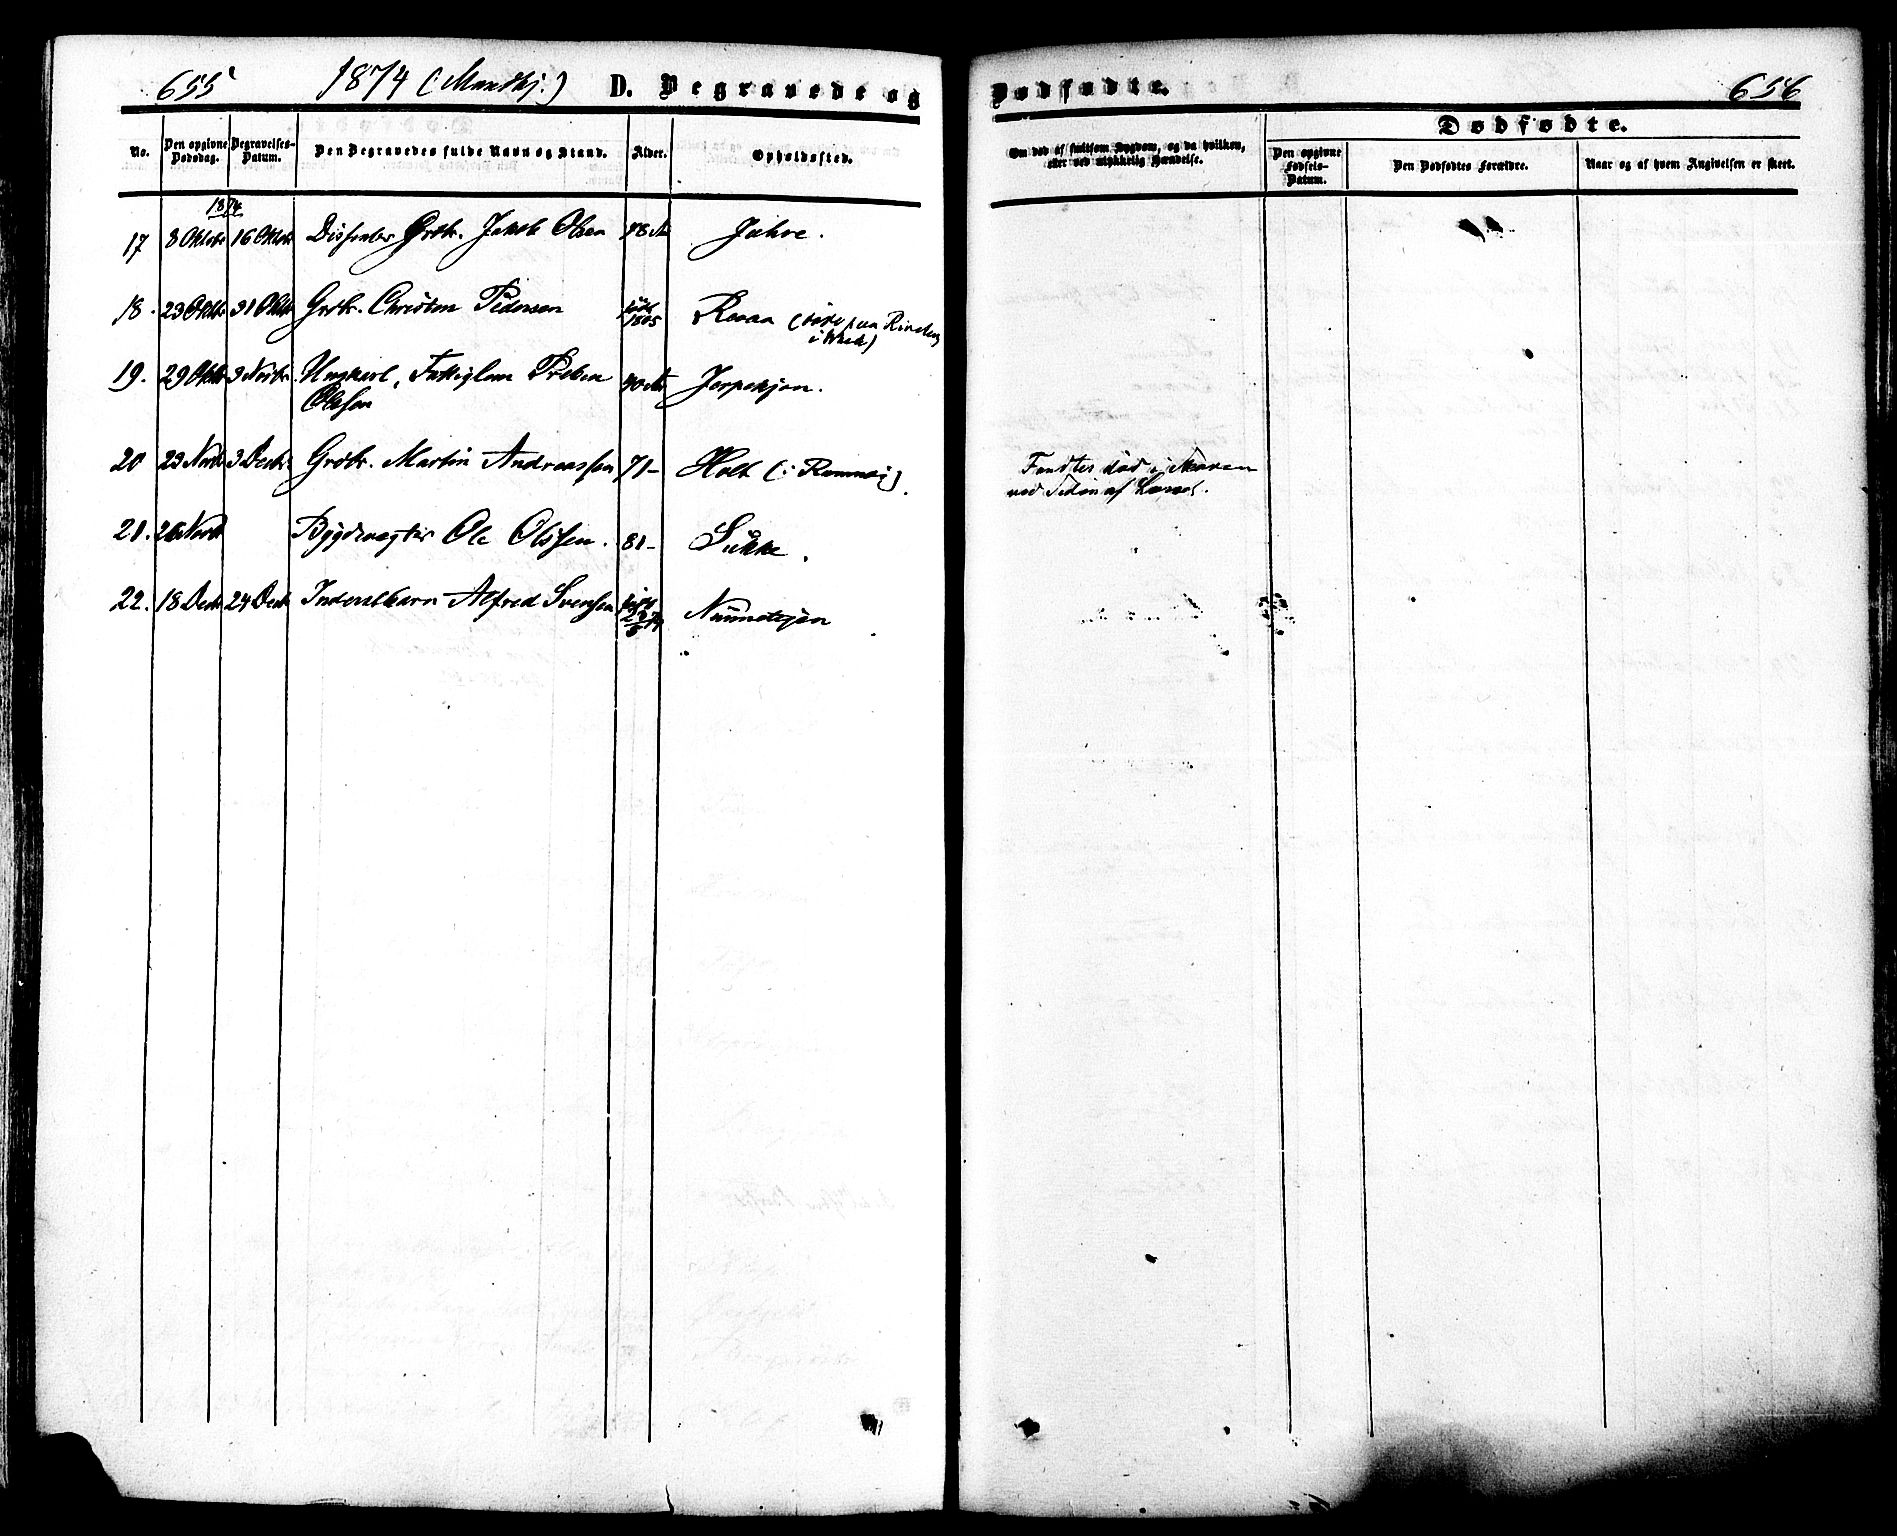 655 1874 (: Mandkj:) D. Begravede og
No. Den opgivne Dødsdag. Begravelses-Datum. Den Begravedes fulde Navn og Stand. Alder. Opholdssted.
1874
17 8 Oktbr 16 Oktbr Dissenter Grdbr. Jakob Olsen 78 Aar Jahre.
18. 23 Oktbr 31 Oktbr Grdbr. Christen Pedersen født 1805 Roaan
19. 29 Oktbr 3 Novbr. Ungkarl, Fattiglem Preben 40 Aar Jorpekjøn.
Olsson
20 23 Novbr 3 Decbr. Grdbr. Martin Andreassen 71 – Holt (: Ramnæs)
21. 26 Novbr Bygdevægter Ole Olssen. 81 – Sukke.
22. 18 Decbr 24 Decbr Inderstbarn Alfred Svensen født
Dødfødte. 656
Dødfødte.
Om død af smitsom Sygdom, og da hvilken, eller ved ulykkelig Hændelse. Den opgivne Fødsels-Datum. Den Dødfødtes Forældre. Naar og af hvem Angivelsen er skeet.
Fandtes død i Skoven
ved Siden af Læsset.